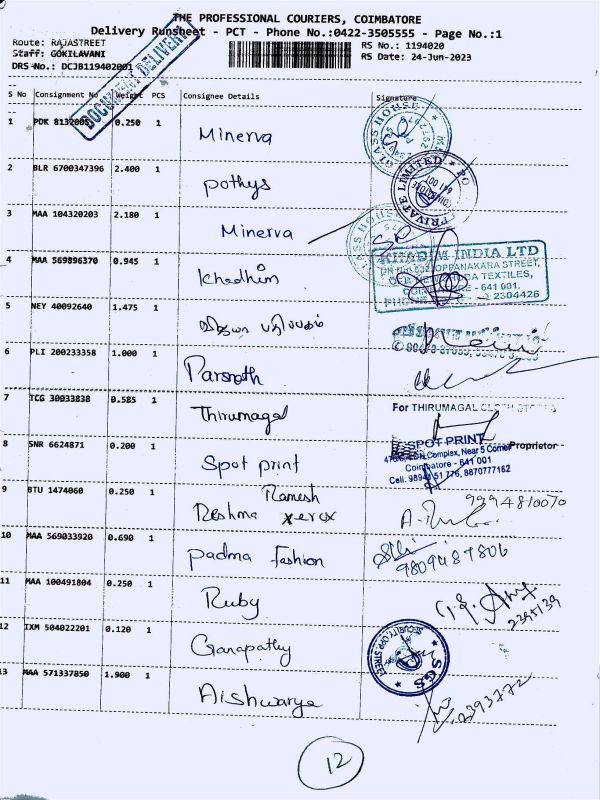 THE PROFESSIONAL COURIERS, COIMBATORE
Delivery Runsheet - PCT - Phone No.:0422-3505555 - Page No.:1
Route: RAJASTREET
RS No.: 1194020
Staff: GOKILAVANI
RS Date: 24-Jun-2023
DRS No.: DCJB119402001
DOCUMENT DELIVERY
S No Consignment No Weight PCS Consignee Details Signature
1 PDK 8132005 0.250 1 Minerva
GLASS HOUSE
2 BLR 6700347396 2.400 1 Pothys
PRIVATE LIMITED
641 001
3 MAA 104320203 2.180 1 Minerva
GLASS HOUSE
4 MAA 569896370 0.945 1 Khadhim
KHADIM INDIA LTD
OPPANAKARA STREET,
TEXTILES,
- 641 001.
2304426
5 NEY 40092640 1.475 1
6 PLI 200233358 1.000 1 Parsnath
7 TCG 30033838 0.585 1 Thirumagal
For THIRUMAGAL CLOTH STORES
Proprietor
8 SNR 6624871 0.200 1 Spot print
SPOT PRINT
Complex, Near 5 Corner
Coimbatore - 641 001
Cell: 98941 51 776, 8870777162
9 BTU 1474060 0.250 1 Reshma xerox
Ramesh
9994810070
10 MAA 569033920 0.690 1 Padma fashion
9809489806
11 MAA 100491804 0.250 1 Ruby
2395139
12 IXM 504022201 0.120 1 Ganapathy
SECURITY OPP STREET
SGS
13 MAA 571337850 1.900 1 Aishwarya
2393772
12